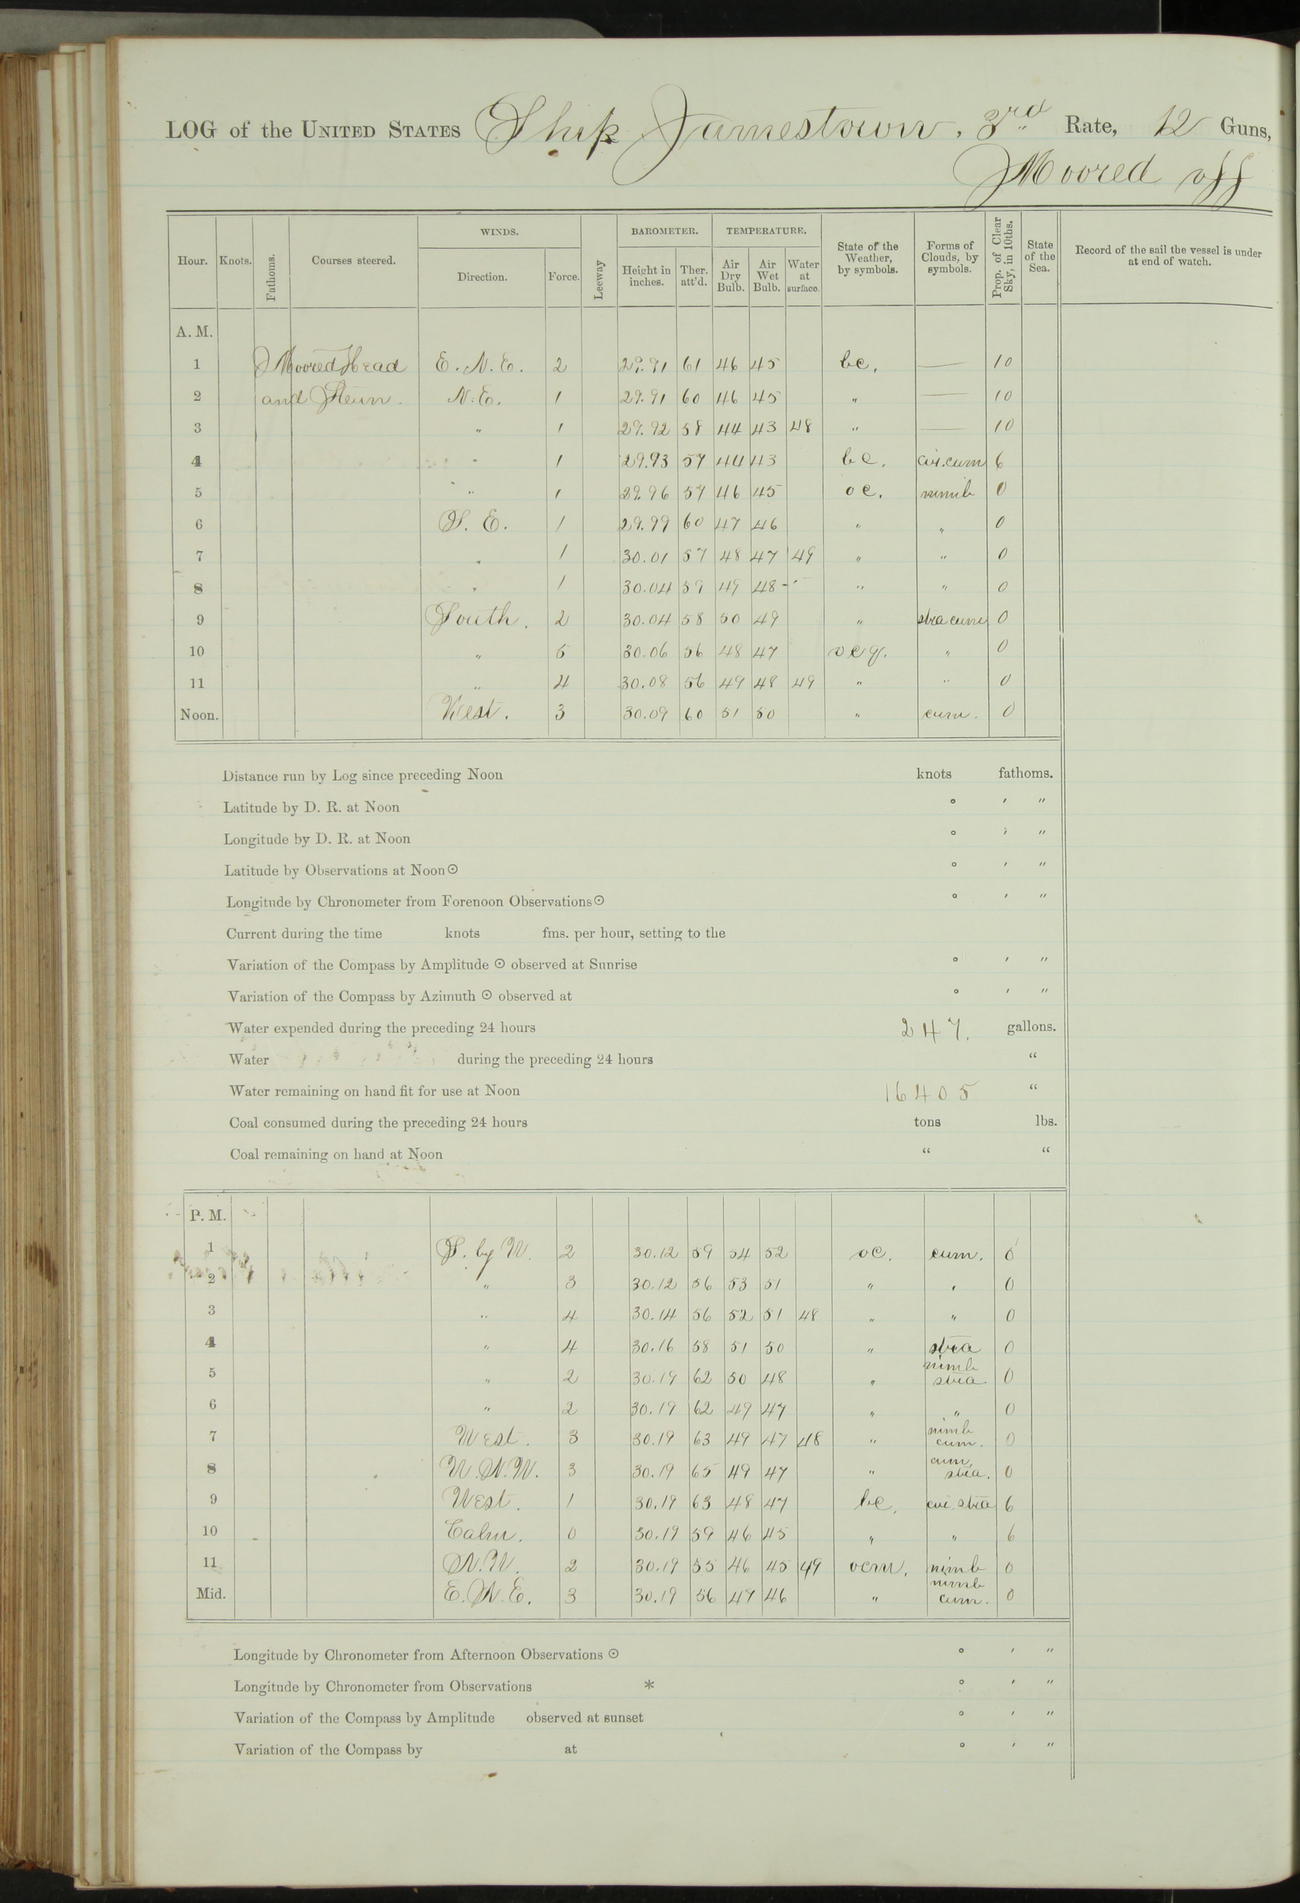 LOG of the UNITED STATES Ship Jamestown, 3rd Rate, 12 Guns,
Moored off
Hour. Knots. Fathoms. Courses steered. WINDS. Direction. Force. Leeway BAROMETER. Height in inches. Ther. att'd. TEMPERATURE. Air Dry Bulb. Air Wet Bulb. Water at surface. State of the Weather, by symbols. Forms of Clouds, by symbols. Prop. of Clear Sky, in 10ths. State of the Sea. Record of the sail the vessel is under at end of watch.
A. M.
1 Moored Head E. N. E. 2 29.91 61 46 45 bc. — 10
2 and Stern. N. E. 1 29.91 60 46 45 " — 10
3 " 1 29.92 58 44 43 48 " — 10
4 " 1 29.93 57 44 43 bc. cir. cum 6
5 " 1 29.96 57 46 45 oc. nimb 0
6 S. E. 1 29.99 60 47 46 " " 0
7 " 1 30.01 57 48 47 49 " " 0
8 " 1 30.04 59 49 48 " " 0
9 South. 2 30.04 58 50 49 " stra cum 0
10 " 5 30.06 56 48 47 ocq. " 0
11 " 4 30.08 56 49 48 49 " " 0
Noon. West. 3 30.09 60 51 50 " cum. 0
Distance run by Log since preceding Noon knots fathoms.
Latitude by D. R. at Noon ° ′ ″
Longitude by D. R. at Noon ° ′ ″
Latitude by Observations at Noon ☉ ° ′ ″
Longitude by Chronometer from Forenoon Observations ☉ ° ′ ″
Current during the time knots fms. per hour, setting to the
Variation of the Compass by Amplitude ☉ observed at Sunrise ° ′ ″
Variation of the Compass by Azimuth ☉ observed at ° ′ ″
Water expended during the preceding 24 hours 247. gallons.
Water during the preceding 24 hours "
Water remaining on hand fit for use at Noon 16405 "
Coal consumed during the preceding 24 hours tons lbs.
Coal remaining on hand at Noon " "
P. M.
1 S. by W. 2 30.12 59 54 52 oc. cum. 0
2 " 3 30.12 56 53 51 " " 0
3 " 4 30.14 56 52 51 48 " " 0
4 " 4 30.16 58 51 50 " stra 0
5 " 2 30.19 62 50 48 " nimb stra 0
6 " 2 30.19 62 49 47 " " 0
7 West. 3 30.19 63 49 47 48 " nimb cum. 0
8 W. N. W. 3 30.19 65 49 47 " cum. stra. 0
9 West. 1 30.19 63 48 47 bc. cir. stra 6
10 Calm. 0 30.19 59 46 45 " " 6
11 N. W. 2 30.19 55 46 45 49 ocm. nimb 0
Mid. E. N. E. 3 30.19 56 47 46 " nimb cum. 0
Longitude by Chronometer from Afternoon Observations ☉ ° ′ ″
Longitude by Chronometer from Observations * ° ′ ″
Variation of the Compass by Amplitude observed at sunset ° ′ ″
Variation of the Compass by at ° ′ ″